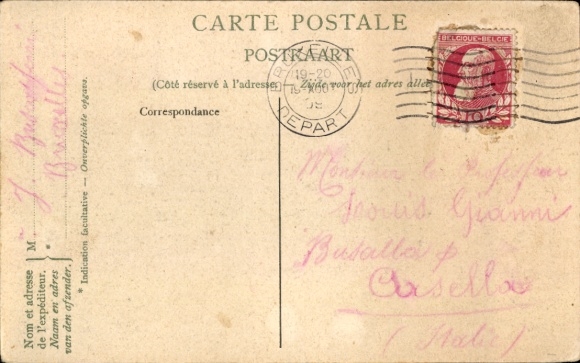 CARTE POSTALE
POSTKAART
(Côté réservé à l'adresse. — Zijde voor het adres alleen
Correspondance
BELGIQUE-BELGIË
19-20
DÉPART
Nom et adresse
de l'expéditeur.
Naam en adres
van den afzender.
M.
J.
Bruxelles
* Indication facultative — Onverplichte opgave.
Monsieur le Professeur
Louis Gianni
Busalla p
Casella
(Italie)